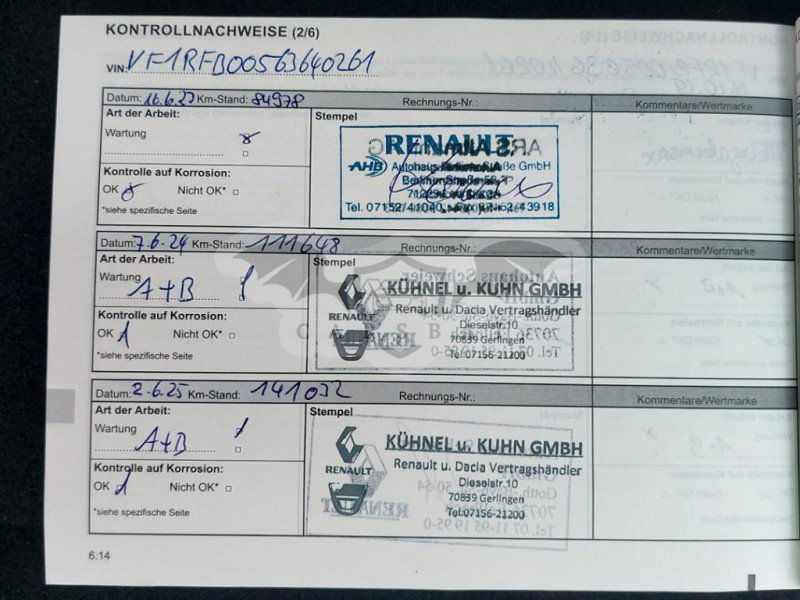 KONTROLLNACHWEISE (2/6)
VIN: VF1RFB00563640261
Datum: 16.6.23 Km-Stand: 84978 Rechnungs-Nr.: Kommentare/Wertmarke
Art der Arbeit: Stempel
Wartung
Kontrolle auf Korrosion:
OK Nicht OK*
*siehe spezifische Seite
RENAULT
AHB Autohaus Berliner Straße GmbH
Berliner Straße
71229 Leonberg
Tel. 07152/41040 Fax 07152/43918
Datum: 7.6.24 Km-Stand: 111648 Rechnungs-Nr.: Kommentare/Wertmarke
Art der Arbeit: Stempel
Wartung A+B
Kontrolle auf Korrosion:
OK Nicht OK*
*siehe spezifische Seite
RENAULT
KÜHNEL u. KUHN GMBH
Renault u. Dacia Vertragshändler
Dieselstr.10
70839 Gerlingen
Tel:07156-21200
Datum: 2.6.25 Km-Stand: 141032 Rechnungs-Nr.: Kommentare/Wertmarke
Art der Arbeit: Stempel
Wartung A+B
Kontrolle auf Korrosion:
OK Nicht OK*
*siehe spezifische Seite
RENAULT
KÜHNEL u. KUHN GMBH
Renault u. Dacia Vertragshändler
Dieselstr.10
70839 Gerlingen
Tel:07156-21200
6.14